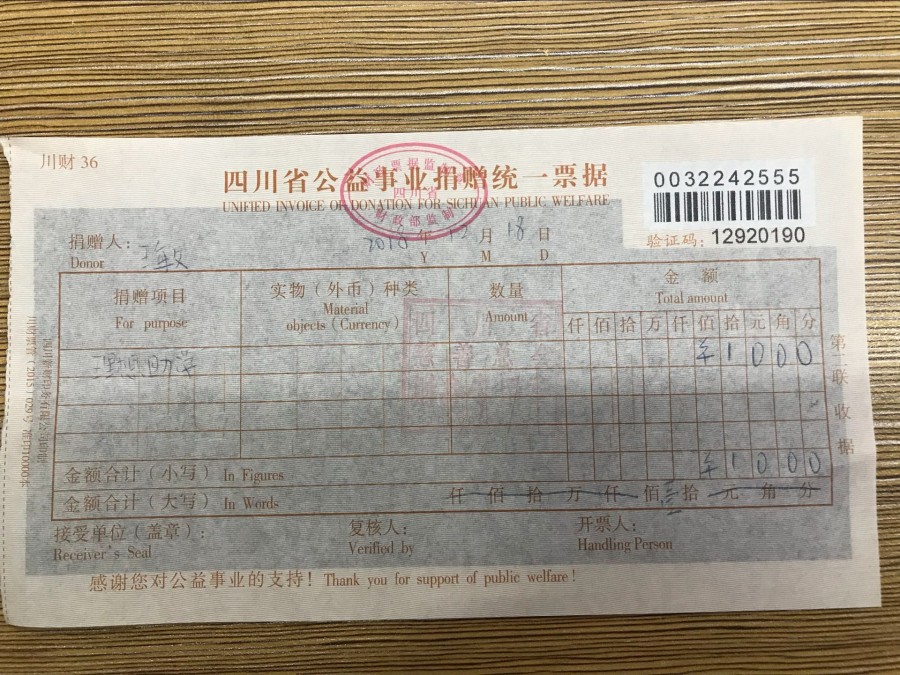 川财 36
四川省公益事业捐赠统一票据
UNIFIED INVOICE OF DONATION FOR SICHUAN PUBLIC WELFARE
0032242555
验证码：12920190
捐赠人：
Donor
2018 年 12 月 18 日
Y M D
捐赠项目
For purpose
实物（外币）种类
Material
objects (Currency)
数量
Amount
金 额
Total amount
仟 佰 拾 万 仟 佰 拾 元 角 分
助学 ¥ 1 0 0 0
金额合计（小写）In Figures ¥ 1 0 0 0
金额合计（大写）In Words 仟 佰 拾 万 仟 佰 拾 元 角 分
接受单位（盖章）：
Receiver's Seal
复核人：
Verified by
开票人：
Handling Person
感谢您对公益事业的支持！Thank you for support of public welfare!
第二联 收据
四川省
财政部监制